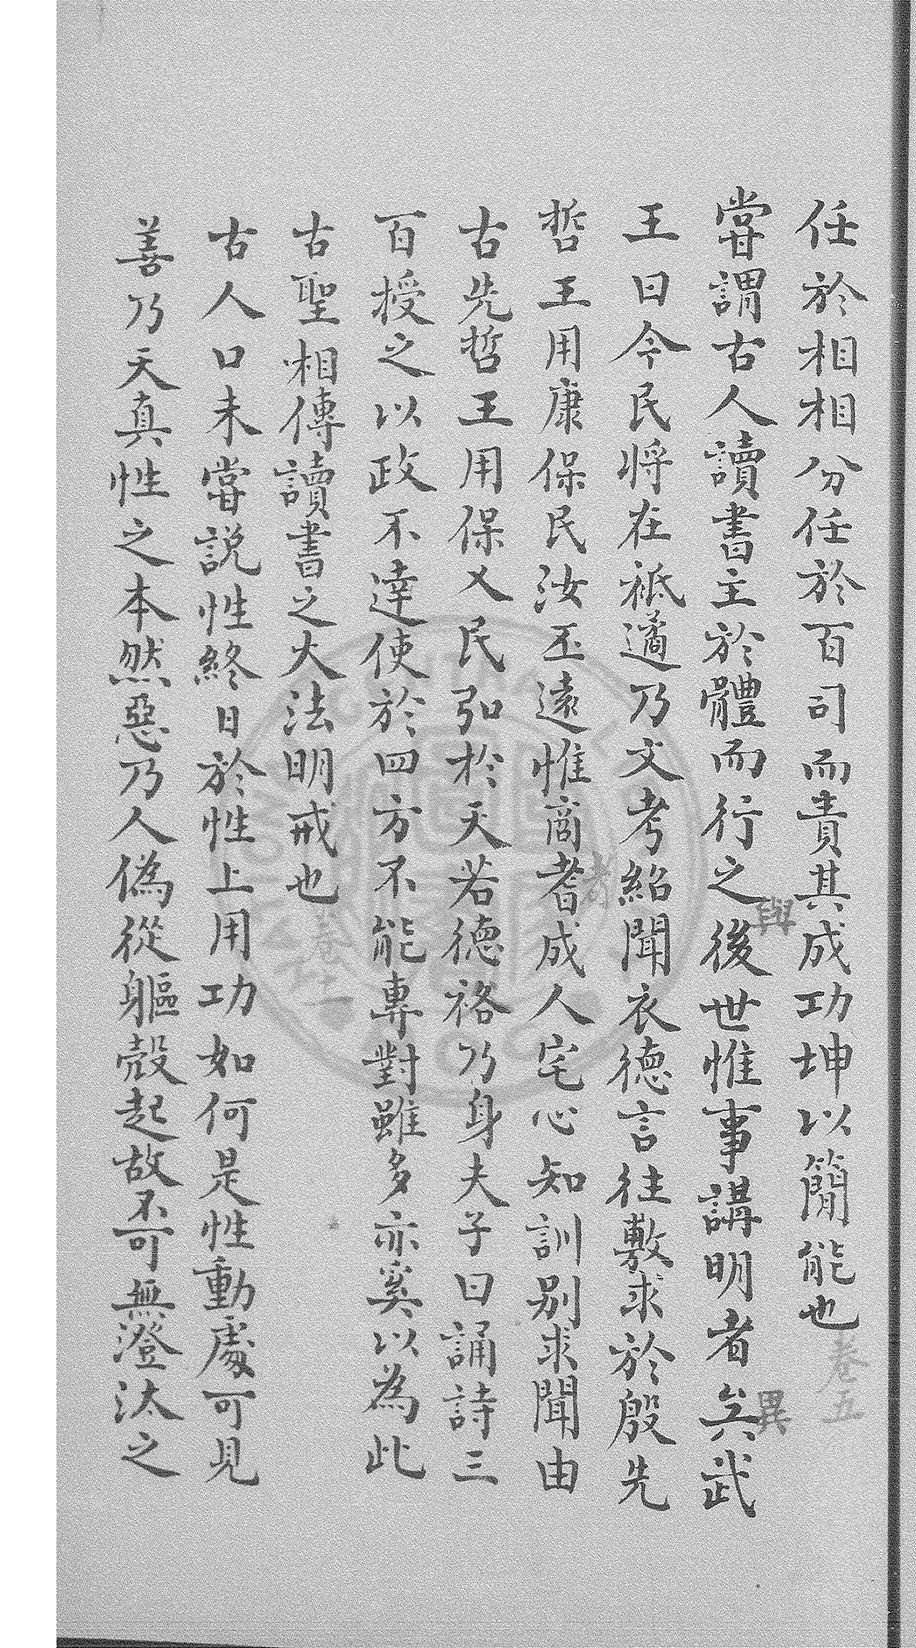 任於相相分任於百司而責其成功坤以簡能也 卷五
嘗謂古人讀書主於體而行之後世惟事講明者矣武
與 異
王曰今民將在祗遹乃文考紹聞衣德言往敷求於殷先
哲王用康保民汝丕遠惟商耆成人宅心知訓别求聞由
考
古先哲王用保乂民弘於天若德裕乃身夫子曰誦詩三
百授之以政不達使於四方不能專對雖多亦奚以為此
古聖相傳讀書之大法明戒也 卷十一
古人口未嘗説性終日於性上用功如何是性動處可見
善乃天真性之本然惡乃人偽從軀殻起故不可無澄汰之